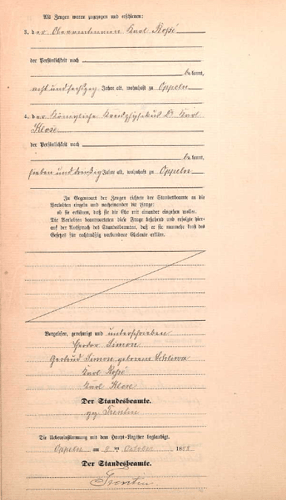 Als Zeugen waren zugezogen und erschienen:
3. der Oberamtmann Karl Kosé
der Persönlichkeit nach
be kannt,
achtundsechzig Jahre alt, wohnhaft zu Oppeln
4. der Königliche Kreisphysikus Dr Karl
Klose
der Persönlichkeit nach
be kannt,
sieben und dreißig Jahre alt, wohnhaft zu Oppeln
In Gegenwart der Zeugen richtete der Standesbeamte an die
Verlobten einzeln und nacheinander die Frage:
ob sie erklären, daß sie die Ehe mit einander eingehen wollen.
Die Verlobten beantworteten diese Frage bejahend und erfolgte hier-
auf der Ausspruch des Standesbeamten, daß er sie nunmehr kraft des
Gesetzes für rechtmäßig verbundene Eheleute erkläre.
Vorgelesen, genehmigt und unterschrieben
Simon
Gertrud Simon geborene
Karl Kosé
Karl Klose
Der Standesbeamte.
Die Uebereinstimmung mit dem Haupt-Register beglaubigt.
Oppeln am ten October 18
Der Standesbeamte.